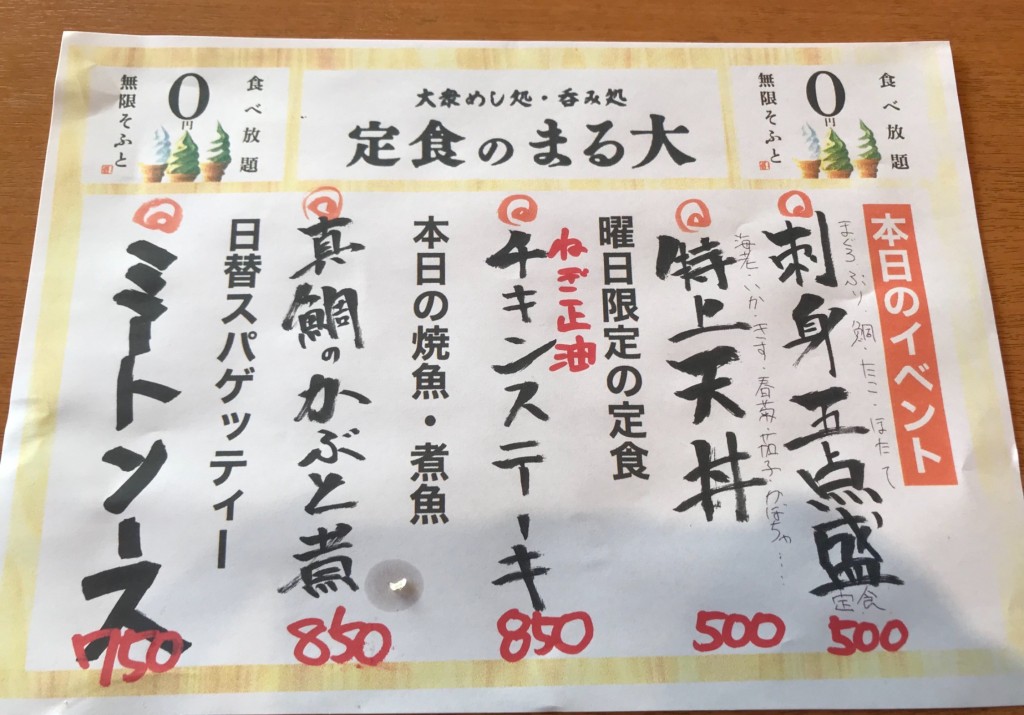 食べ放題
0円
無限そふと
大衆めし処・呑み処
定食のまる大
食べ放題
0円
無限そふと
本日のイベント
まぐろ ぶり・鯛・たこ・ほたて
刺身五点盛
定食
500
海老・いか・きす・春菊・茄子・かぼちゃ・・・
特上天丼
500
曜日限定の定食
ねぎ正油
チキンステーキ
850
本日の焼魚・煮魚
真鯛のかぶと煮
850
日替スパゲッティー
ミートソース
750